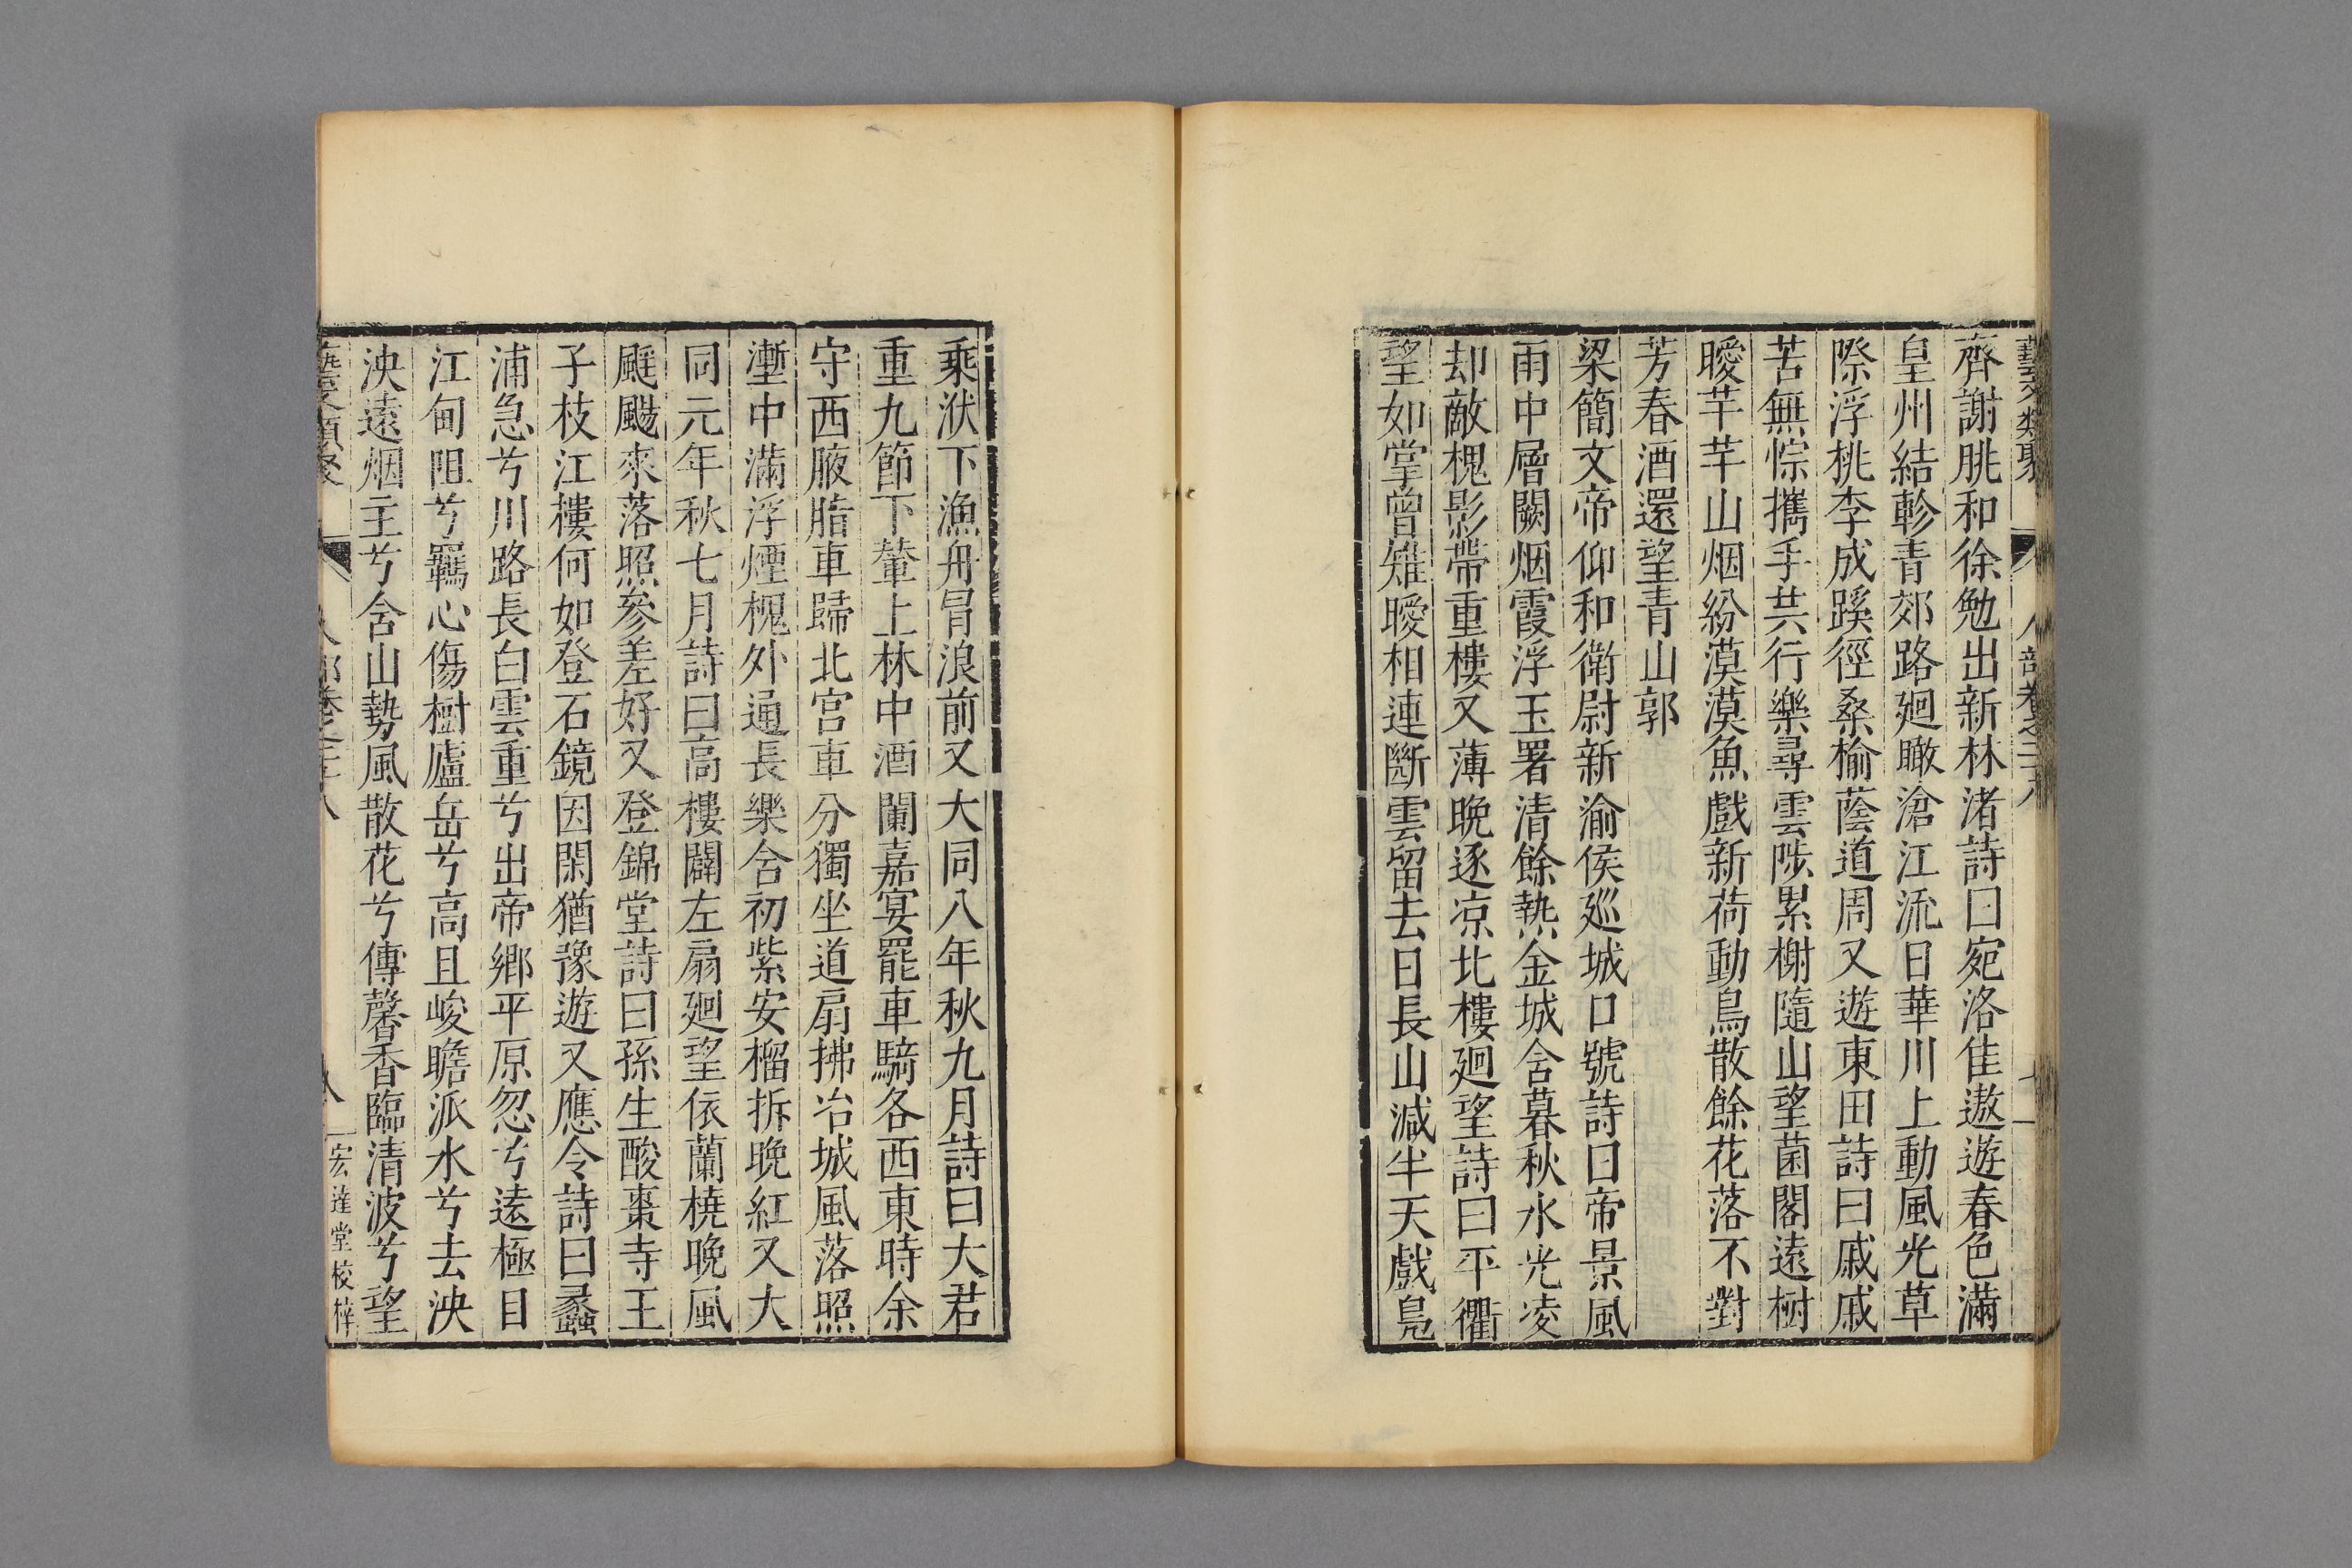 藝文類聚 人部卷之二十八 七
齊謝朓和徐勉出新林渚詩曰宛洛佳遨遊春色滿
皇州結軫青郊路廻瞰滄江流日華川上動風光草
際浮桃李成蹊徑桑榆蔭道周又遊東田詩曰戚戚
苦無悰攜手共行樂尋雲陟累榭隨山望菌閣遠樹
曖芊芊山烟紛漠漠魚戲新荷動鳥散餘花落不對
芳春酒還望青山郭
梁簡文帝仰和衛尉新渝侯巡城口號詩曰帝景風
雨中層闕烟霞浮玉署清餘熱金城含暮秋水光凌
却敵槐影帶重樓又薄晚逐凉北樓廻望詩曰平衢
望如掌曾雉曖相連斷雲留去日長山減半天戲鳧
乘洑下漁舟冒浪前又大同八年秋九月詩曰大君
重九節下輦上林中酒闌嘉宴罷車騎各西東時余
守西腋脂車歸北宮車分獨坐道扇拂冶城風落照
壍中滿浮煙槐外通長樂含初紫安榴拆晚紅又大
同元年秋七月詩曰高樓闢左扇廻望依蘭橈晚風
颳颺來落照參差好又登錦堂詩曰孫生酸棗寺王
子枝江樓何如登石鏡因閑猶豫遊又應令詩曰蠡
浦急兮川路長白雲重兮出帝鄉平原忽兮遠極目
江甸阻兮羈心傷樹廬岳兮高且峻瞻派水兮去泱
泱遠烟主兮含山勢風散花兮傳馨香臨清波兮望
藝文類聚 人部卷之二十八 八 宏達堂校梓